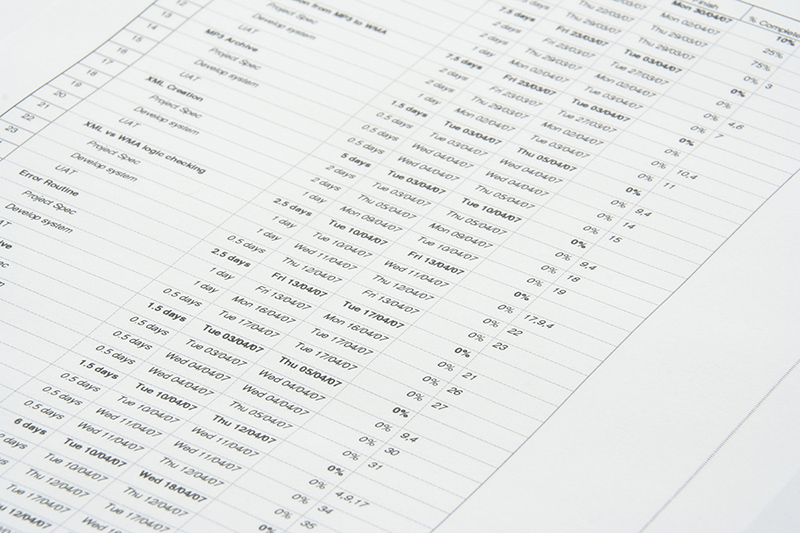 12
13
14
15
16
17
18
19
20
21
22
23
Project Spec
from MP3 to WMA
Develop system
UAT
MP3 Archive
Project Spec
Develop system
UAT
XML Creation
Project Spec
Develop system
UAT
XML vs WMA logic checking
Project Spec
Develop system
UAT
Error Routine
Project Spec
Develop system
7.5 days
2 days
2 days
1 day
7.5 days
2 days
2 days
1 day
1.5 days
0.5 days
0.5 days
0.5 days
5 days
2 days
2 days
1 day
2.5 days
1 day
1 day
0.5 days
2.5 days
1 day
1 day
0.5 days
1.5 days
0.5 days
0.5 days
0.5 days
1.5 days
0.5 days
0.5 days
0.5 days
6 days
2 days
Fri 23/03/07
Fri 23/03/07
Thu 29/03/07
Mon 02/04/07
Tue 03/04/07
Wed 04/04/07
Wed 04/04/07
Tue 03/04/07
Tue 03/04/07
Thu 05/04/07
Mon 09/04/07
Tue 10/04/07
Tue 10/04/07
Wed 11/04/07
Thu 12/04/07
Fri 13/04/07
Fri 13/04/07
Mon 16/04/07
Tue 17/04/07
Tue 03/04/07
Tue 03/04/07
Wed 04/04/07
Wed 04/04/07
Tue 10/04/07
Tue 10/04/07
Wed 11/04/07
Wed 11/04/07
Tue 10/04/07
Tue 10/04/07
Thu 12/04/07
Tue 17/04/07
Thu 12/04/07
Finish
Mon 30/04/07
Mon 02/04/07
Thu 29/03/07
Tue 03/04/07
Tue 27/03/07
Mon 02/04/07
Tue 03/04/07
Thu 05/04/07
Wed 04/04/07
Wed 04/04/07
Thu 05/04/07
Tue 10/04/07
Thu 05/04/07
Mon 09/04/07
Tue 10/04/07
Fri 13/04/07
Wed 11/04/07
Thu 12/04/07
Fri 13/04/07
Tue 17/04/07
Mon 16/04/07
Tue 17/04/07
Tue 17/04/07
Thu 05/04/07
Wed 04/04/07
Wed 04/04/07
Thu 05/04/07
Thu 12/04/07
Wed 11/04/07
Wed 11/04/07
Thu 12/04/07
Wed 18/04/07
Thu 12/04/07
Tue 17/04/07
% Complete
10%
25%
75%
0% 3
0%
0%
0% 4,6
0% 7
0%
0%
0% 10,4
0% 11
0%
0% 9,4
0% 14
0% 15
0%
0% 9,4
0% 18
0% 19
0%
0% 17,9,4
0% 22
0% 23
0%
0% 21
0% 26
0% 27
0%
0% 9,4
0% 30
0% 31
0%
0% 4,9,17
0% 34
0% 35
0%